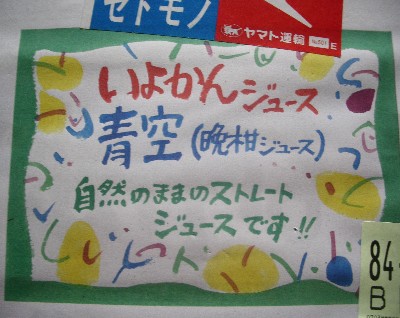 セトモノ
ヤマト運輸
E
いよかんジュース
青空(晩柑ジュース)
自然のままのストレート
ジュースです!!
84
B